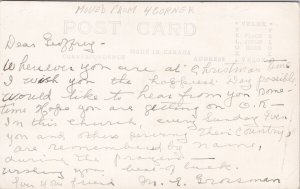 MOVED FROM 4 CORNER
POST CARD
CORRESPONDENCE MADE IN CANADA ADDRESS
VELOX
PLACE
STAMP
HERE
VELOX
Dear Geoffrey -
Wherever you are at Christmas time
I wish you the happiest Day possible,
would like to hear from you some-
time Hope you are getting on O.K -
In this church, every Sunday Even,
you and others serving their Country,
are remembered by name,
during the prayers -
wishing you best of luck.
Ever your friend M. E. Grossman